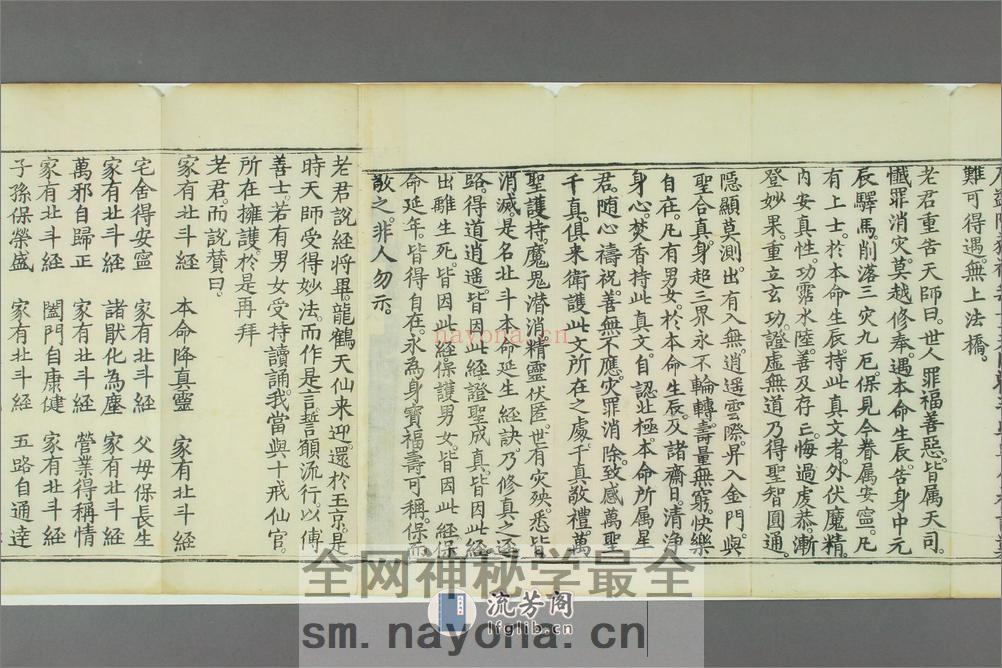 難可得遇。無上法橋。
老君重告天師曰。世人罪福善惡。皆属天司。
懺罪消灾。莫越修奉。遇本命生辰。告身中元
辰驛馬。削落三灾九厄。保見今眷属安寍。凡
有上士。於本命生辰。持此真文者。外伏魔精。
内安真性。功霑水陸。善及存亡。悔過虔恭。漸
登妙果。重立玄功。證虚無道。乃得聖智圓通。
隠顯莫測。出有入無。逍遥雲際。昇入金門。與
聖合真。身超三界。永不輪轉。壽量無窮。快樂
自在。凡有男女。於本命生辰。及諸齋日。清淨
身心。焚香持此真文。自認北極本命所属星
君。随心禱祝。善無不應。灾罪消除。致感萬聖
千真。俱来衛護。此文所在之處。千真敬禮。萬
聖護持。魔鬼潜消。精靈伏匿。世有灾殃。悉皆
消滅。是名北斗本命延生經訣。乃修真之逕
路。得道逍遥。皆因此經。證聖成真。皆因此經。
出離生死。皆因此經。保護男女。皆因此經。保
命延年。皆得自在。永為身寶。福壽可稱。保而
敬之。非人勿示。
老君說經將畢。龍鶴天仙来迎。還於玉京。是
時天師受得妙法。而作是言。誓願流行。以傳
善士。若有男女。受持讀誦。我當與十戒仙官。
所在擁護。於是再拜
老君。而說贊曰。
家有北斗經 本命降真靈 家有北斗經
宅舍得安寍 家有北斗經 父母保長生
家有北斗經 諸猒化為塵 家有北斗經
萬邪自歸正 家有北斗經 營業得稱情
家有北斗經 闔門自康健 家有北斗經
子孫保榮盛 家有北斗經 五路自通達
nayona.cn
全网神秘学最全
流芳阁
lfglib.cn
sm.nayona.cn